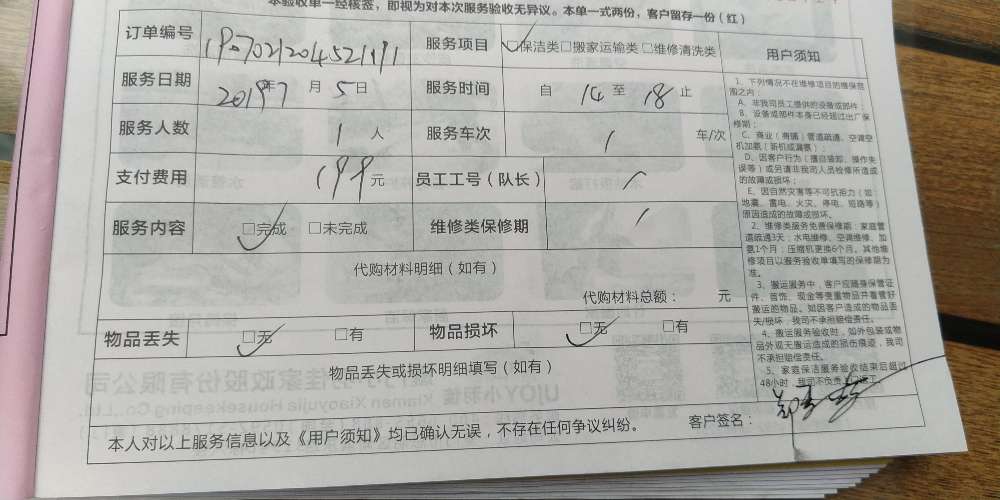 本验收单一经核签，即视为对本次服务验收无异议。本单一式两份，客户留存一份（红）
订单编号 190702120452191 服务项目 ☑保洁类□搬家运输类□维修清洗类
服务日期 2019年7月5日 服务时间 自 14 至 18 止
服务人数 1 人 服务车次 / 车/次
支付费用 199元 员工工号（队长） /
服务内容 ☑完成 □未完成 维修类保修期 /
代购材料明细（如有）
代购材料总额： 元
物品丢失 ☑无 □有 物品损坏 ☑无 □有
物品丢失或损坏明细填写（如有）
本人对以上服务信息以及《用户须知》均已确认无误，不存在任何争议纠纷。
客户签名：
用户须知
1、下列情况不在维修项目的维保范
围之内：
A、非我司员工提供的设备或部件；
B、设备或部件本身已经超过出厂保
修期；
C、商业（商铺）管道疏通、空调空
机加氨（新机或漏氨）；
D、因客户行为（擅自装卸、操作失
误等）或另请非我司人员检修所造成
的故障或损坏；
E、因自然灾害等不可抗拒力（如：
地震、雷电、火灾、停电、短路等）
原因造成的故障或损坏。
2、维修类服务免费保修期：家庭管
道疏通3天；水电维修、空调维修、加
氨1个月；压缩机更换6个月。其他维
修项目以服务验收单填写的保修期为
准。
3、搬运服务中，客户应随身保管证
件、首饰、现金等贵重物品并看管好
搬运的物品。如因客户造成的物品丢
失/损坏，我司不承担赔偿责任。
4、搬运服务验收时，如外包装或物
品外观无搬运造成的损伤痕迹，我司
不承担赔偿责任。
5、家庭保洁服务验收结束后超过
48小时，我司不负责